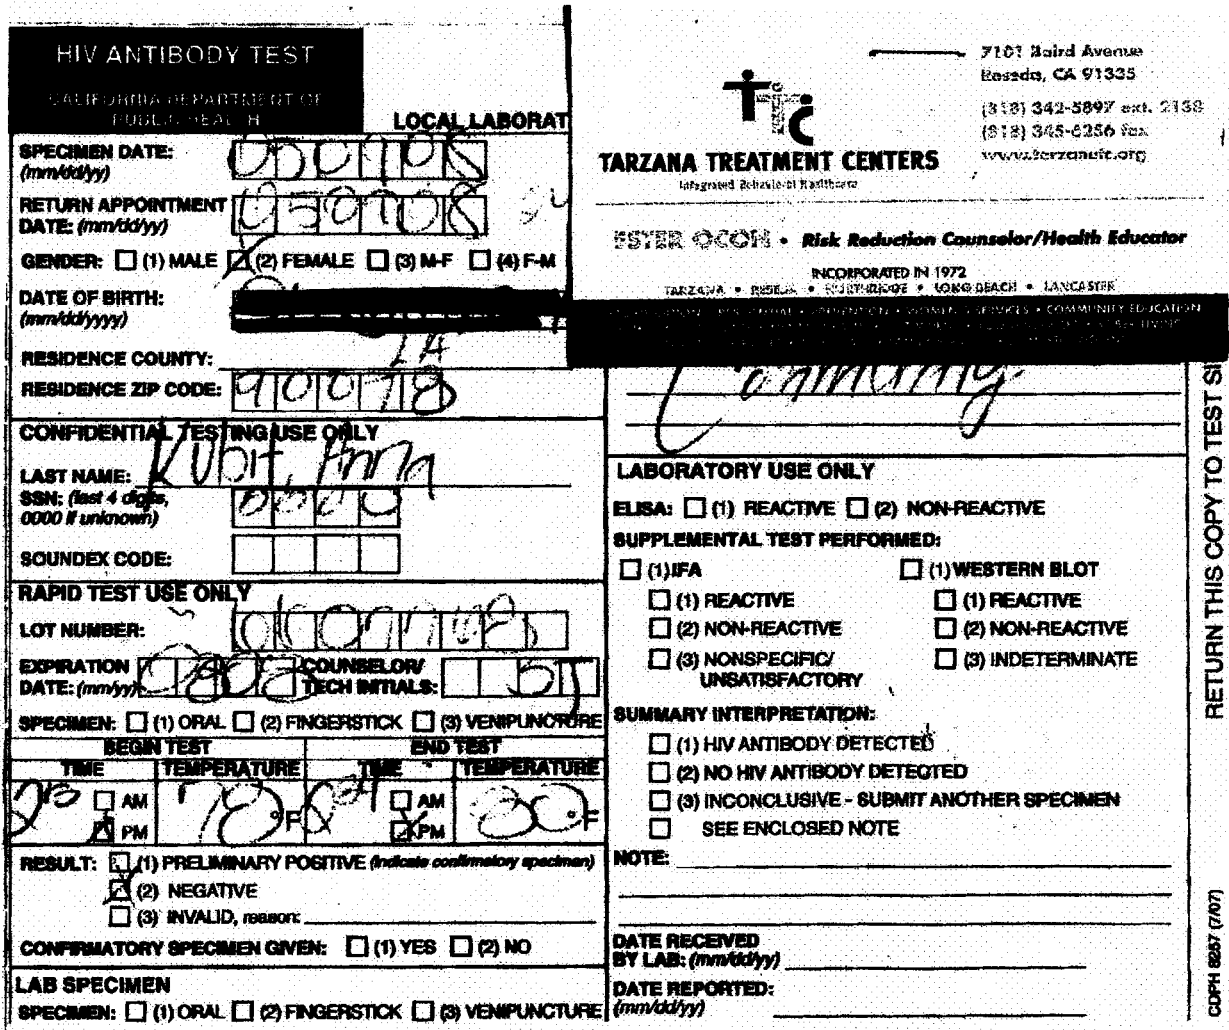 HIV ANTIBODY TEST
CALIFORNIA DEPARTMENT OF
PUBLIC HEALTH
LOCAL LABORAT
SPECIMEN DATE:
(mm/dd/yy)
RETURN APPOINTMENT
DATE: (mm/dd/yy)
GENDER: (1) MALE (2) FEMALE (3) M-F (4) F-M
DATE OF BIRTH:
(mm/dd/yyyy)
RESIDENCE COUNTY: LA
RESIDENCE ZIP CODE: 90078
CONFIDENTIAL TESTING USE ONLY
LAST NAME: Kubit, Anna
SSN: (last 4 digits,
0000 if unknown)
SOUNDEX CODE:
RAPID TEST USE ONLY
LOT NUMBER:
EXPIRATION
DATE: (mm/yy)
COUNSELOR/
TECH INITIALS:
SPECIMEN: (1) ORAL (2) FINGERSTICK (3) VENIPUNCTURE
BEGIN TEST END TEST
TIME TEMPERATURE TIME TEMPERATURE
AM 78 °F AM 80 °F
PM PM
RESULT: (1) PRELIMINARY POSITIVE (Indicate confirmatory specimen)
(2) NEGATIVE
(3) INVALID, reason:
CONFIRMATORY SPECIMEN GIVEN: (1) YES (2) NO
LAB SPECIMEN
SPECIMEN: (1) ORAL (2) FINGERSTICK (3) VENIPUNCTURE
7101 Baird Avenue
Reseda, CA 91335
(818) 342-5897 ext. 2138
(818) 345-6256 fax
www.tarzanatc.org
TTC
TARZANA TREATMENT CENTERS
Integrated Behavioral Healthcare
ESTER OCON • Risk Reduction Counselor/Health Educator
INCORPORATED IN 1972
TARZANA • RESEDA • NORTHRIDGE • LONG BEACH • LANCASTER
COMMUNITY EDUCATION
LABORATORY USE ONLY
ELISA: (1) REACTIVE (2) NON-REACTIVE
SUPPLEMENTAL TEST PERFORMED:
(1) IFA (1) WESTERN BLOT
(1) REACTIVE (1) REACTIVE
(2) NON-REACTIVE (2) NON-REACTIVE
(3) NONSPECIFIC/ (3) INDETERMINATE
UNSATISFACTORY
SUMMARY INTERPRETATION:
(1) HIV ANTIBODY DETECTED
(2) NO HIV ANTIBODY DETECTED
(3) INCONCLUSIVE - SUBMIT ANOTHER SPECIMEN
SEE ENCLOSED NOTE
NOTE:
DATE RECEIVED
BY LAB: (mm/dd/yy)
DATE REPORTED:
(mm/dd/yy)
RETURN THIS COPY TO TEST SI
CDPH 8257 (7/07)